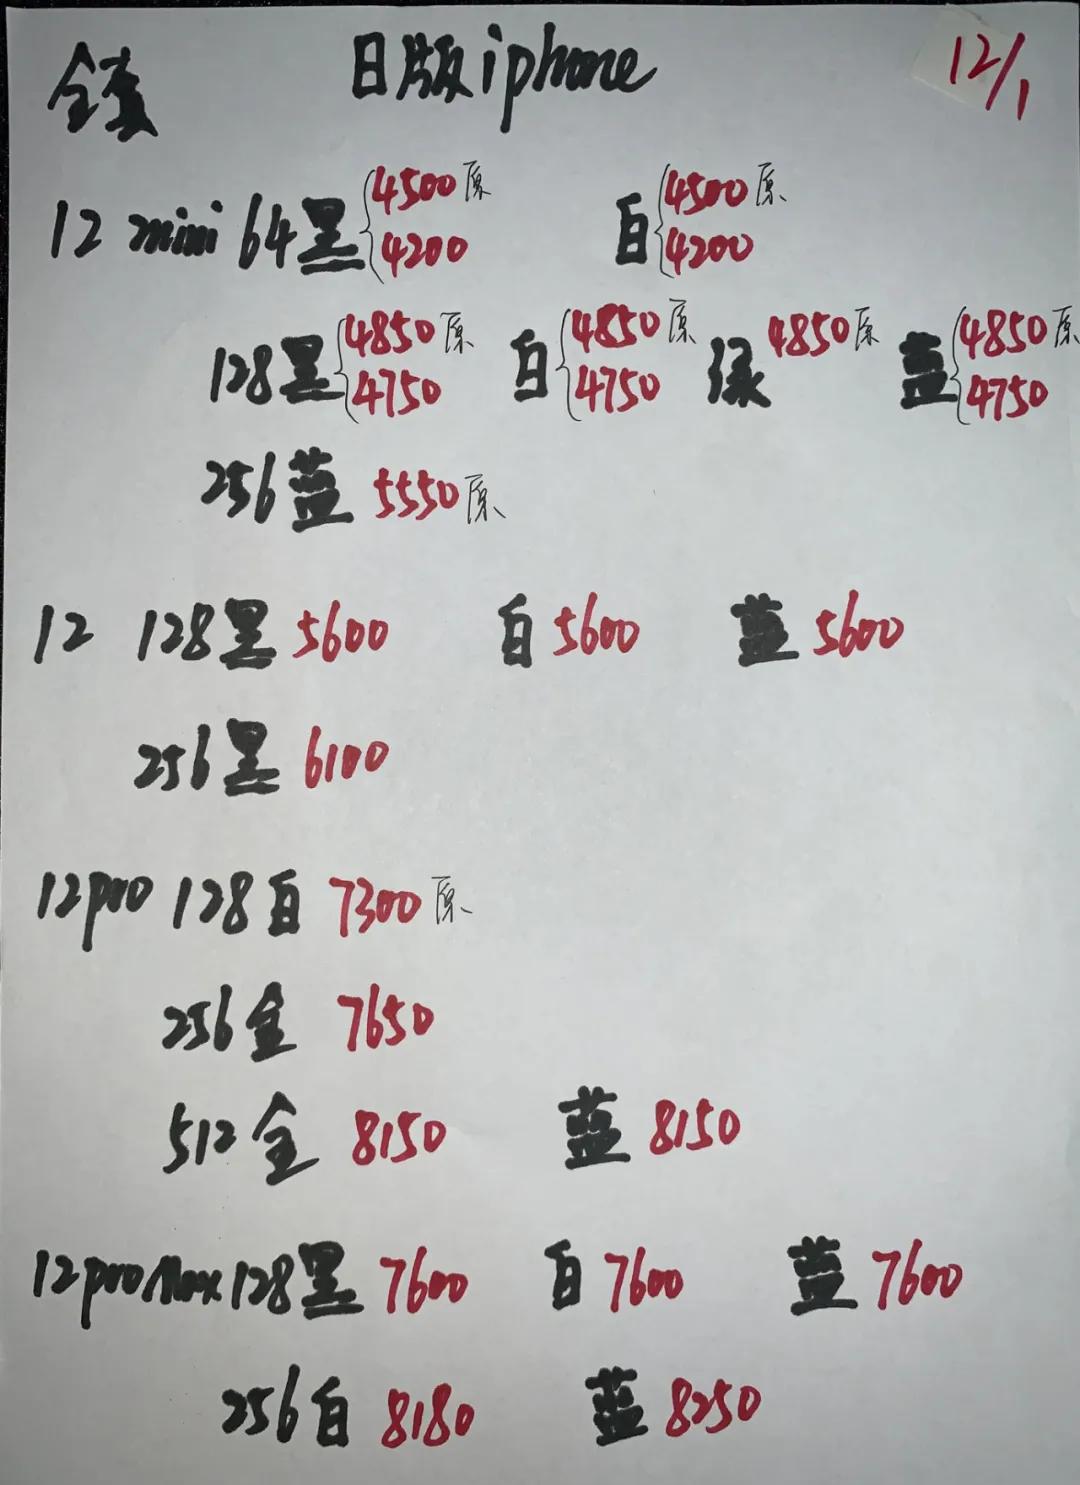 全套 日版iphone 12/1
12 mini 64黑 4500原 4200 白 4500原 4200
128黑 4850原 4750 白 4850原 4750 绿 4850原 蓝 4850原 4750
256蓝 5550原
12 128黑 5600 白 5600 蓝 5600
256黑 6100
12pro 128白 7300原
256金 7650
512金 8150 蓝 8150
12proMax 128黑 7600 白 7600 蓝 7600
256白 8180 蓝 8250